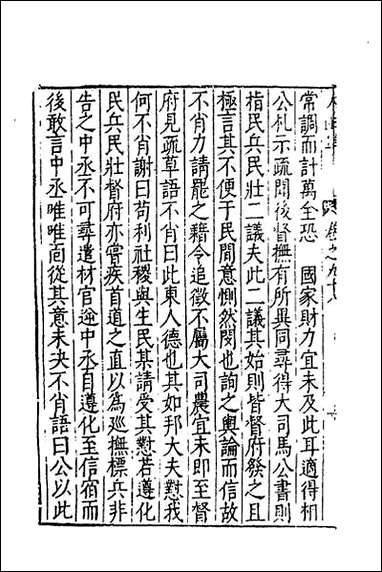 常調而計萬全恐　國家財力宜未及此耳適得相
公札示疏閱後督撫有所異同尋得大司馬公書則
指民兵民壯二議夫此二議其始則皆督府發之且
極言其不便于民間意惻然閔也詢之輿論而信故
不肖力請罷之藉令追徵不屬大司農宜未即至督
府見疏草語不肖曰此東人德也其如邦大夫懟我
何不肖謝曰苟利社稷與生民某請受其懟若遵化
民兵民壯督府亦嘗疾首道之直以為廵撫標兵非
告之中丞不可尋遣材官逾中丞自遵化至信宿而
後敢言中丞唯唯卮從其意未決不肖語曰公以此